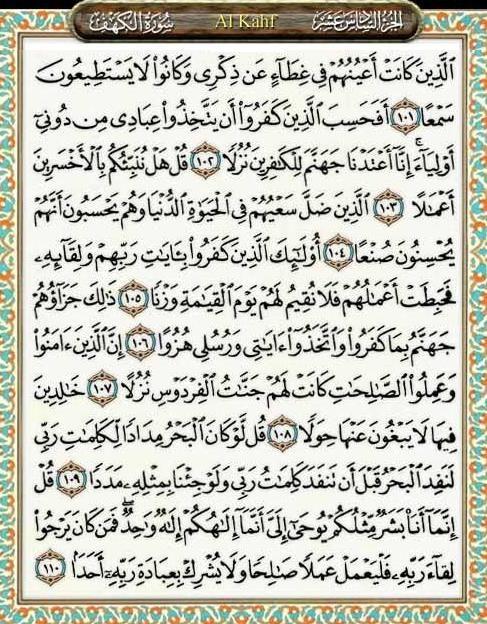 الجزء السادس عشر Al Kahf سورة الكهف
الَّذِينَ كَانَتْ أَعْيُنُهُمْ فِي غِطَآءٍ عَن ذِكْرِى وَكَانُوا۟ لَا يَسْتَطِيعُونَ
سَمْعًا ١٠١ أَفَحَسِبَ الَّذِينَ كَفَرُوٓا۟ أَن يَتَّخِذُوا۟ عِبَادِى مِن دُونِىٓ
أَوْلِيَآءَ ۚ إِنَّآ أَعْتَدْنَا جَهَنَّمَ لِلْكَـٰفِرِينَ نُزُلًا ١٠٢ قُلْ هَلْ نُنَبِّئُكُم بِالْأَخْسَرِينَ
أَعْمَـٰلًا ١٠٣ الَّذِينَ ضَلَّ سَعْيُهُمْ فِي الْحَيَوٰةِ الدُّنْيَا وَهُمْ يَحْسَبُونَ أَنَّهُمْ
يُحْسِنُونَ صُنْعًا ١٠٤ أُو۟لَـٰٓئِكَ الَّذِينَ كَفَرُوا۟ بِـَٔايَـٰتِ رَبِّهِمْ وَلِقَآئِهِۦ
فَحَبِطَتْ أَعْمَـٰلُهُمْ فَلَا نُقِيمُ لَهُمْ يَوْمَ الْقِيَـٰمَةِ وَزْنًا ١٠٥ ذَٰلِكَ جَزَآؤُهُمْ
جَهَنَّمُ بِمَا كَفَرُوا۟ وَاتَّخَذُوٓا۟ ءَايَـٰتِى وَرُسُلِى هُزُوًا ١٠٦ إِنَّ الَّذِينَ ءَامَنُوا۟
وَعَمِلُوا۟ الصَّـٰلِحَـٰتِ كَانَتْ لَهُمْ جَنَّـٰتُ الْفِرْدَوْسِ نُزُلًا ١٠٧ خَـٰلِدِينَ
فِيهَا لَا يَبْغُونَ عَنْهَا حِوَلًا ١٠٨ قُل لَّوْ كَانَ الْبَحْرُ مِدَادًا لِّكَلِمَـٰتِ رَبِّى
لَنَفِدَ الْبَحْرُ قَبْلَ أَن تَنفَدَ كَلِمَـٰتُ رَبِّى وَلَوْ جِئْنَا بِمِثْلِهِۦ مَدَدًا ١٠٩ قُلْ
إِنَّمَآ أَنَا۠ بَشَرٌ مِّثْلُكُمْ يُوحَىٰٓ إِلَىَّ أَنَّمَآ إِلَـٰهُكُمْ إِلَـٰهٌ وَٰحِدٌ ۖ فَمَن كَانَ يَرْجُوا۟
لِقَآءَ رَبِّهِۦ فَلْيَعْمَلْ عَمَلًا صَـٰلِحًا وَلَا يُشْرِكْ بِعِبَادَةِ رَبِّهِۦٓ أَحَدًۢا ١١٠